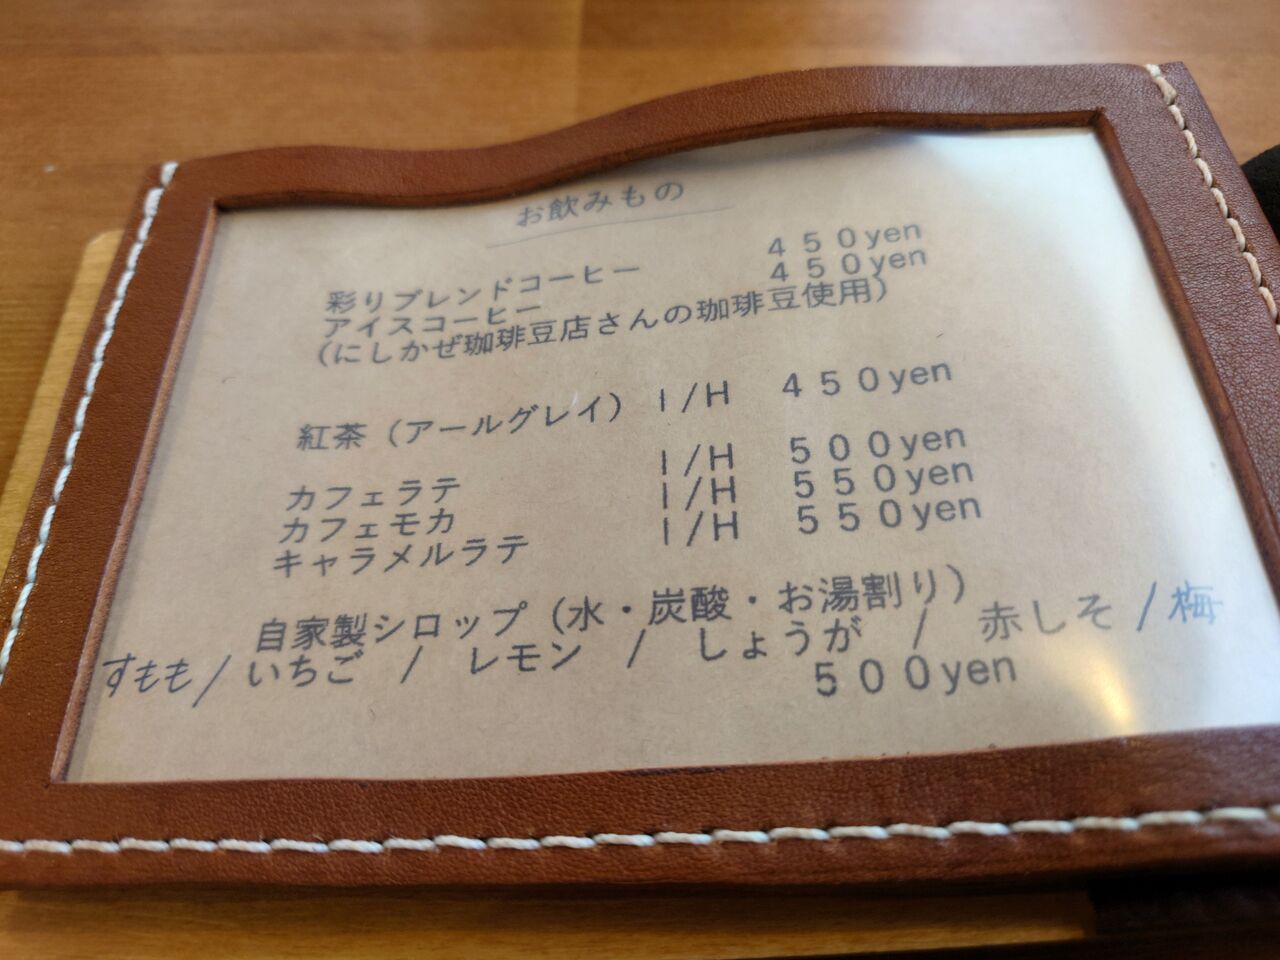 お飲みもの
彩りブレンドコーヒー 450yen
アイスコーヒー 450yen
(にしかぜ珈琲豆店さんの珈琲豆使用)
紅茶(アールグレイ) I/H 450yen
カフェラテ I/H 500yen
カフェモカ I/H 550yen
キャラメルラテ I/H 550yen
自家製シロップ(水・炭酸・お湯割り)
すもも/いちご / レモン / しょうが / 赤しそ/梅
500yen